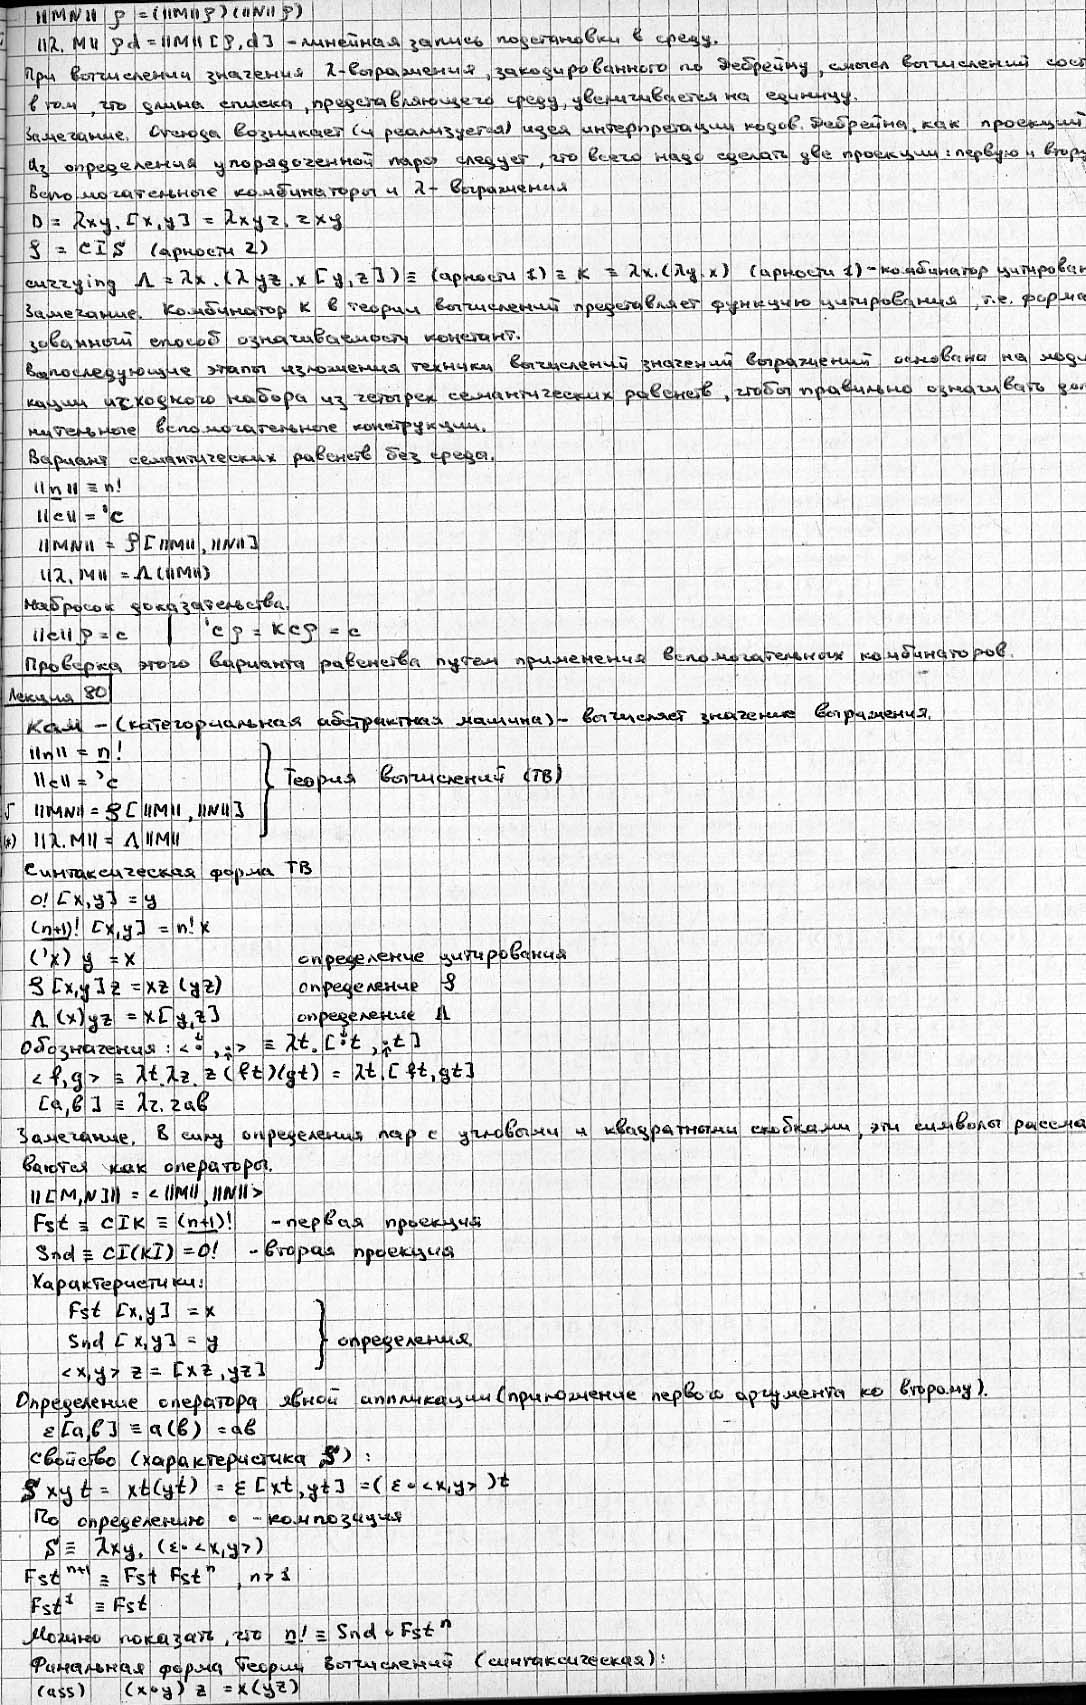 ||MN|| ρ = (||M||ρ)(||N||ρ)
||λ. M|| ρd = ||M|| [ρ,d] - линейная запись подстановки в среду.
При вычислении значения λ-выражения, закодированного по Дебрейну, смысл вычислений сост
в том, что длина списка, представляющего среду, увеличивается на единицу.
Замечание. Отсюда возникает (и реализуется) идея интерпретации кодов Дебрейна, как проекций
Из определения упорядоченной пары следует, что всего надо сделать две проекции: первую и втору
Вспомогательные комбинаторы и λ- выражения
D = λxy. [x,y] = λxyz. zxy
S = CIS (арности 2)
currying Λ = λx. (λyz. x [y,z]) ≡ (арности 1) ≡ K = λx.(λy.x) (арности 1) - комбинатор цитирован
Замечание. Комбинатор K в теории вычислений представляет функцию цитирования, т.е. форма
зованный способ означиваемости констант.
Впоследующие этапы изложения техники вычислений значений выражений основана на моди
кации исходного набора из четырех семантических равенств, чтобы правильно означивать доп
нительные вспомогательные конструкции.
Вариант семантических равенств без среды.
||n|| ≡ n!
||c|| = 'c
||MN|| = S [||M||, ||N||]
||λ. M|| = Λ(||M||)
Набросок доказательства.
||c|| ρ = c | 'c ρ = Kcρ = c
Проверка этого варианта равенства путем применения вспомогательных комбинаторов.
Лекция 80
КАМ - (категориальная абстрактная машина) - вычисляет значение выражения.
||n|| = n!
||c|| = 'c } Теория вычислений (ТВ)
||MN|| = S [||M||, ||N||]
(*) ||λ. M|| = Λ ||M||
Синтаксическая форма ТВ
0! [x,y] = y
(n+1)! [x,y] = n! x
('x) y = x определение цитирования
S [x,y] z = xz (yz) определение S
Λ (x) yz = x[y,z] определение Λ
Обозначения: <·, ·> ≡ λt. [·t, ·t]
<f,g> ≡ λt.λz. z(ft)(gt) = λt.[ft,gt]
[a,b] ≡ λz. zab
Замечание. В силу определения пар с угловыми и квадратными скобками, эти символы рассма
ваются как операторы.
||[M,N]|| = <||M||, ||N||>
Fst ≡ CIK ≡ (n+1)! - первая проекция
Snd ≡ CI(KI) = 0! - вторая проекция
Характеристики:
Fst [x,y] = x
Snd [x,y] = y } определения
<x,y> z = [xz, yz]
Определение оператора явной аппликации (приложение первого аргумента ко второму).
ε[a,b] ≡ a(b) = ab
Свойство (характеристика S):
S xyt = xt(yt) = ε[xt,yt] = (ε∘<x,y>)t
По определению ∘ - композиция
S ≡ λxy. (ε∘<x,y>)
Fst^{n+1} ≡ Fst Fst^n, n>1
Fst^1 ≡ Fst
Можно показать, что n! ≡ Snd ∘ Fst^n
Финальная форма Теории Вычислений (синтаксическая):
(ass) (x∘y) z = x(yz)